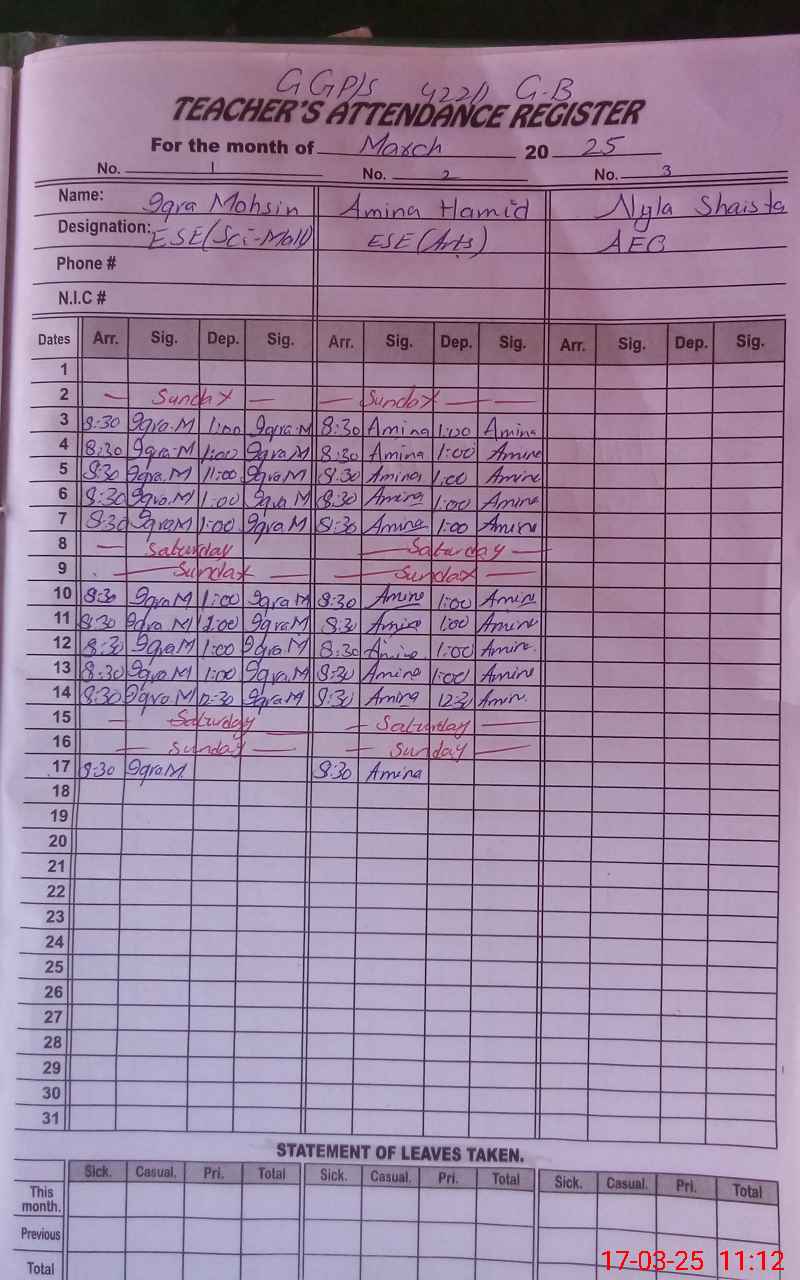 GGP/S 422/1 G-B
TEACHER'S ATTENDANCE REGISTER
For the month of March 20 25
No. 1 No. 2 No. 3
Name: Iqra Mohsin Amina Hamid Nyla Shaista
Designation: ESE (Sci-Math) ESE (Arts)
Phone #
N.I.C #
Dates Arr. Sig. Dep. Sig. Arr. Sig. Dep. Sig. Arr. Sig. Dep. Sig.
1
2 — Sunday — — Sunday — —
3 8:30 Iqra.M 1:00 Iqra.M 8:30 Amina 1:00 Amina
4 8:30 Iqra.M 1:00 Iqra M 8:30 Amina 1:00 Amina
5 8:30 Iqra.M 1:00 Iqra.M 8:30 Amina 1:00 Amina
6 8:30 Iqra.M 1:00 Iqra M 8:30 Amina 1:00 Amina
7 8:30 Iqra M 1:00 Iqra M 8:30 Amina 1:00 Amina
8 — Saturday — Saturday —
9 — Sunday — — Sunday —
10 8:30 Iqra M 1:00 Iqra M 8:30 Amina 1:00 Amina
11 8:30 Iqra M 1:00 Iqra M 8:30 Amina 1:00 Amina
12 8:30 Iqra M 1:00 Iqra M 8:30 Amina 1:00 Amina.
13 8:30 Iqra.M 1:00 Iqra.M 8:30 Amina 1:00 Amina
14 8:30 Iqra.M 12:30 Iqra M 8:30 Amina 12:30 Amin.
15 — Saturday — Saturday —
16 — Sunday — — Sunday —
17 8:30 Iqra M 8:30 Amina
18
19
20
21
22
23
24
25
26
27
28
29
30
31
STATEMENT OF LEAVES TAKEN.
Sick. Casual. Pri. Total Sick. Casual. Pri. Total Sick. Casual. Pri. Total
This month.
Previous
Total
17-03-25 11:12